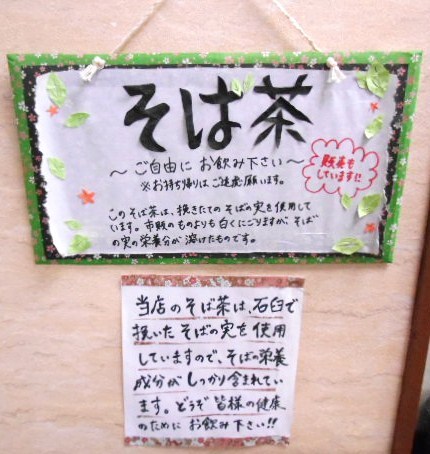 そば茶
～ご自由に お飲み下さい～
※お持ち帰りは ご遠慮願います。
販売も
しています!!
このそば茶は、挽きたての そばの実を使用して
います。市販のものよりも 白くにごりますが そば
の実の栄養分が 溶けたものです。
当店のそば茶は、石臼で
挽いた そばの実を 使用
していますので、そばの栄養
成分が しっかり含まれてい
ます。どうぞ 皆様の健康
のために お飲み下さい!!